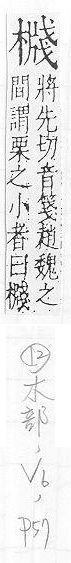 將先切音箋趙魏之
間謂栗之小者曰
⑫木部, V6, P57